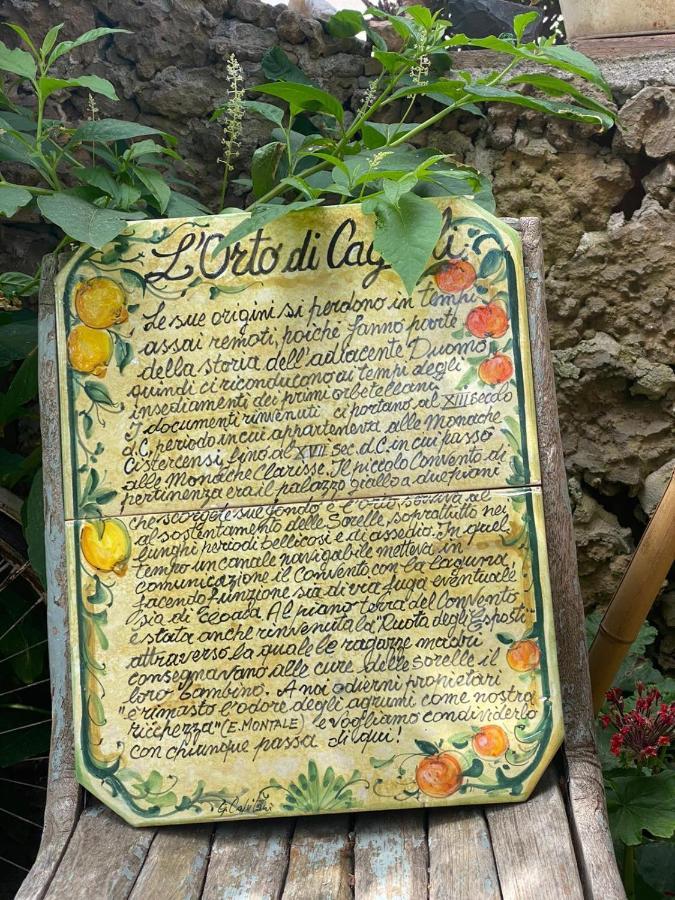 L'Orto di
Le sue origini si perdono in tempi
assai remoti, poichè fanno parte
della storia dell'adiacente Duomo,
quindi ci riconducono ai tempi degli
insediamenti dei primi orbetellani.
I documenti rinvenuti ci portano, al XIII secolo
d.C, periodo in cui apparteneva alle Monache
Cistercensi, fino al XVII sec. d.C. in cui passò
alle Monache Clarisse. Il piccolo Convento di
pertinenza era il palazzo giallo a due piani
che scorgete sul fondo e l'orto, serviva al
al sostentamento delle Sorelle, soprattutto nei
lunghi periodi bellicosi e di assedio. In quel
tempo un canale navigabile metteva in
comunicazione il Convento con la laguna,
facendo funzione sia di via fuga eventuale
sia di Cloaca. Al piano terra del Convento
è stata anche rinvenuta la "Ruota degli Esposti"
attraverso la quale le ragazze madri
consegnavano alle cure delle Sorelle il
loro bambino. A noi odierni proprietari
"è rimasto l'odore degli agrumi come nostra
ricchezza" (E. MONTALE) e vogliamo condividerlo
con chiunque passa di qui!